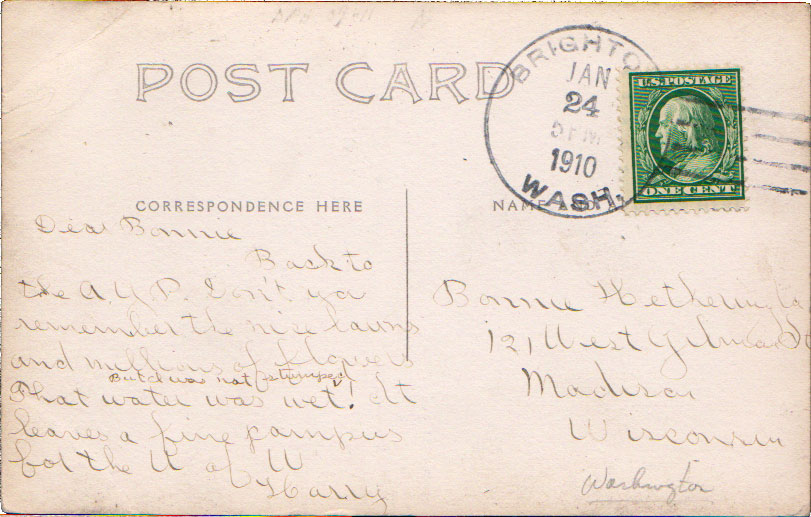 POST CARD
BRIGHTO
JAN
24
5 PM
1910
WASH.
U.S. POSTAGE
ONE CENT
CORRESPONDENCE HERE
NAME AND
Dear Bonnie
Back to
the A Y P. Don't you
remember the nice lawns
and millions of flowers
But it was not
That water was wet! It
leaves a fine campus
for the U of W
Harry
Bonnie Hetherington
121 West Gilman St
Madison
Wisconsin
Washington